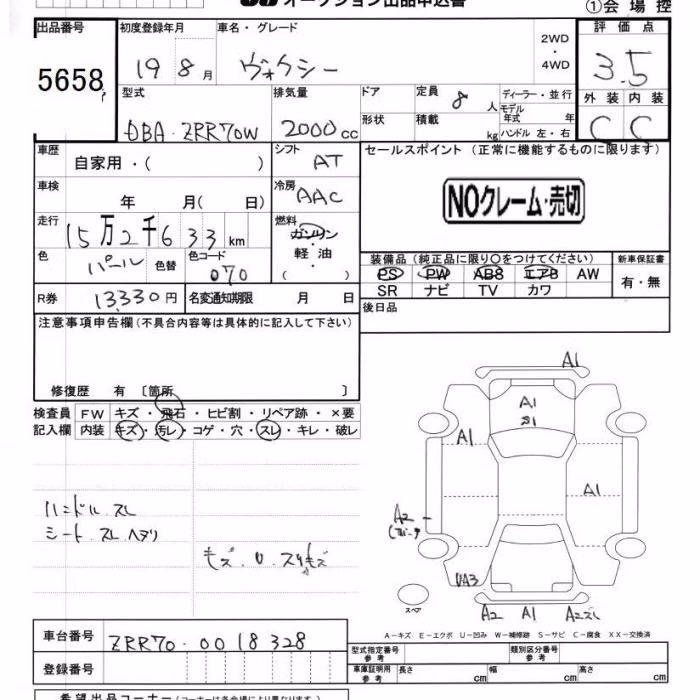 オークション出品申込書
①会場控
出品番号
5658
初度登録年月
19 8 月
車名・グレード
ヴォクシー
2WD
・
4WD
評価点
3.5
外装 内装
C C
型式
DBA・ZRR70W
排気量
2000 cc
ドア
形状
定員
8 人
積載
kg
ディーラー・並行
モデル
年式 年
ハンドル 左・右
車歴
自家用・( )
シフト
AT
セールスポイント (正常に機能するものに限ります)
NOクレーム・売切
車検
年 月( 日)
冷房
AAC
走行
15万2千633 km
燃料
ガソリン
・
軽油
・
( )
色
パール
色替
色コード
070
装備品 (純正品に限り○をつけてください)
新車保証書
PS PW AB8 エアB AW
SR ナビ TV カワ
有・無
R券
13,330円
名変通知期限
月 日
後日品
注意事項申告欄 (不具合内容等は具体的に記入して下さい)
修復歴 有 〔箇所 〕
検査員
記入欄
FW キズ・飛石・ヒビ割・リペア跡・×要
内装 キズ・汚レ・コゲ・穴・スレ・キレ・破レ
ハンドル.スレ
シート.スレ.ヘタリ
キズ.U.スリキズ
A1
A1
A1
A1
A2
UA3
スペア
A2 A1 A2スレ
A-キズ E-エクボ U-凹み W-補修跡 S-サビ C-腐食 XX-交換済
車台番号
ZRR70-0018328
登録番号
型式指定番号
参考
類別区分番号
参考
車庫証明用
参考
長さ cm
幅 cm
高さ cm
希望出品コーナー (コーナーは各会場により異なります。)